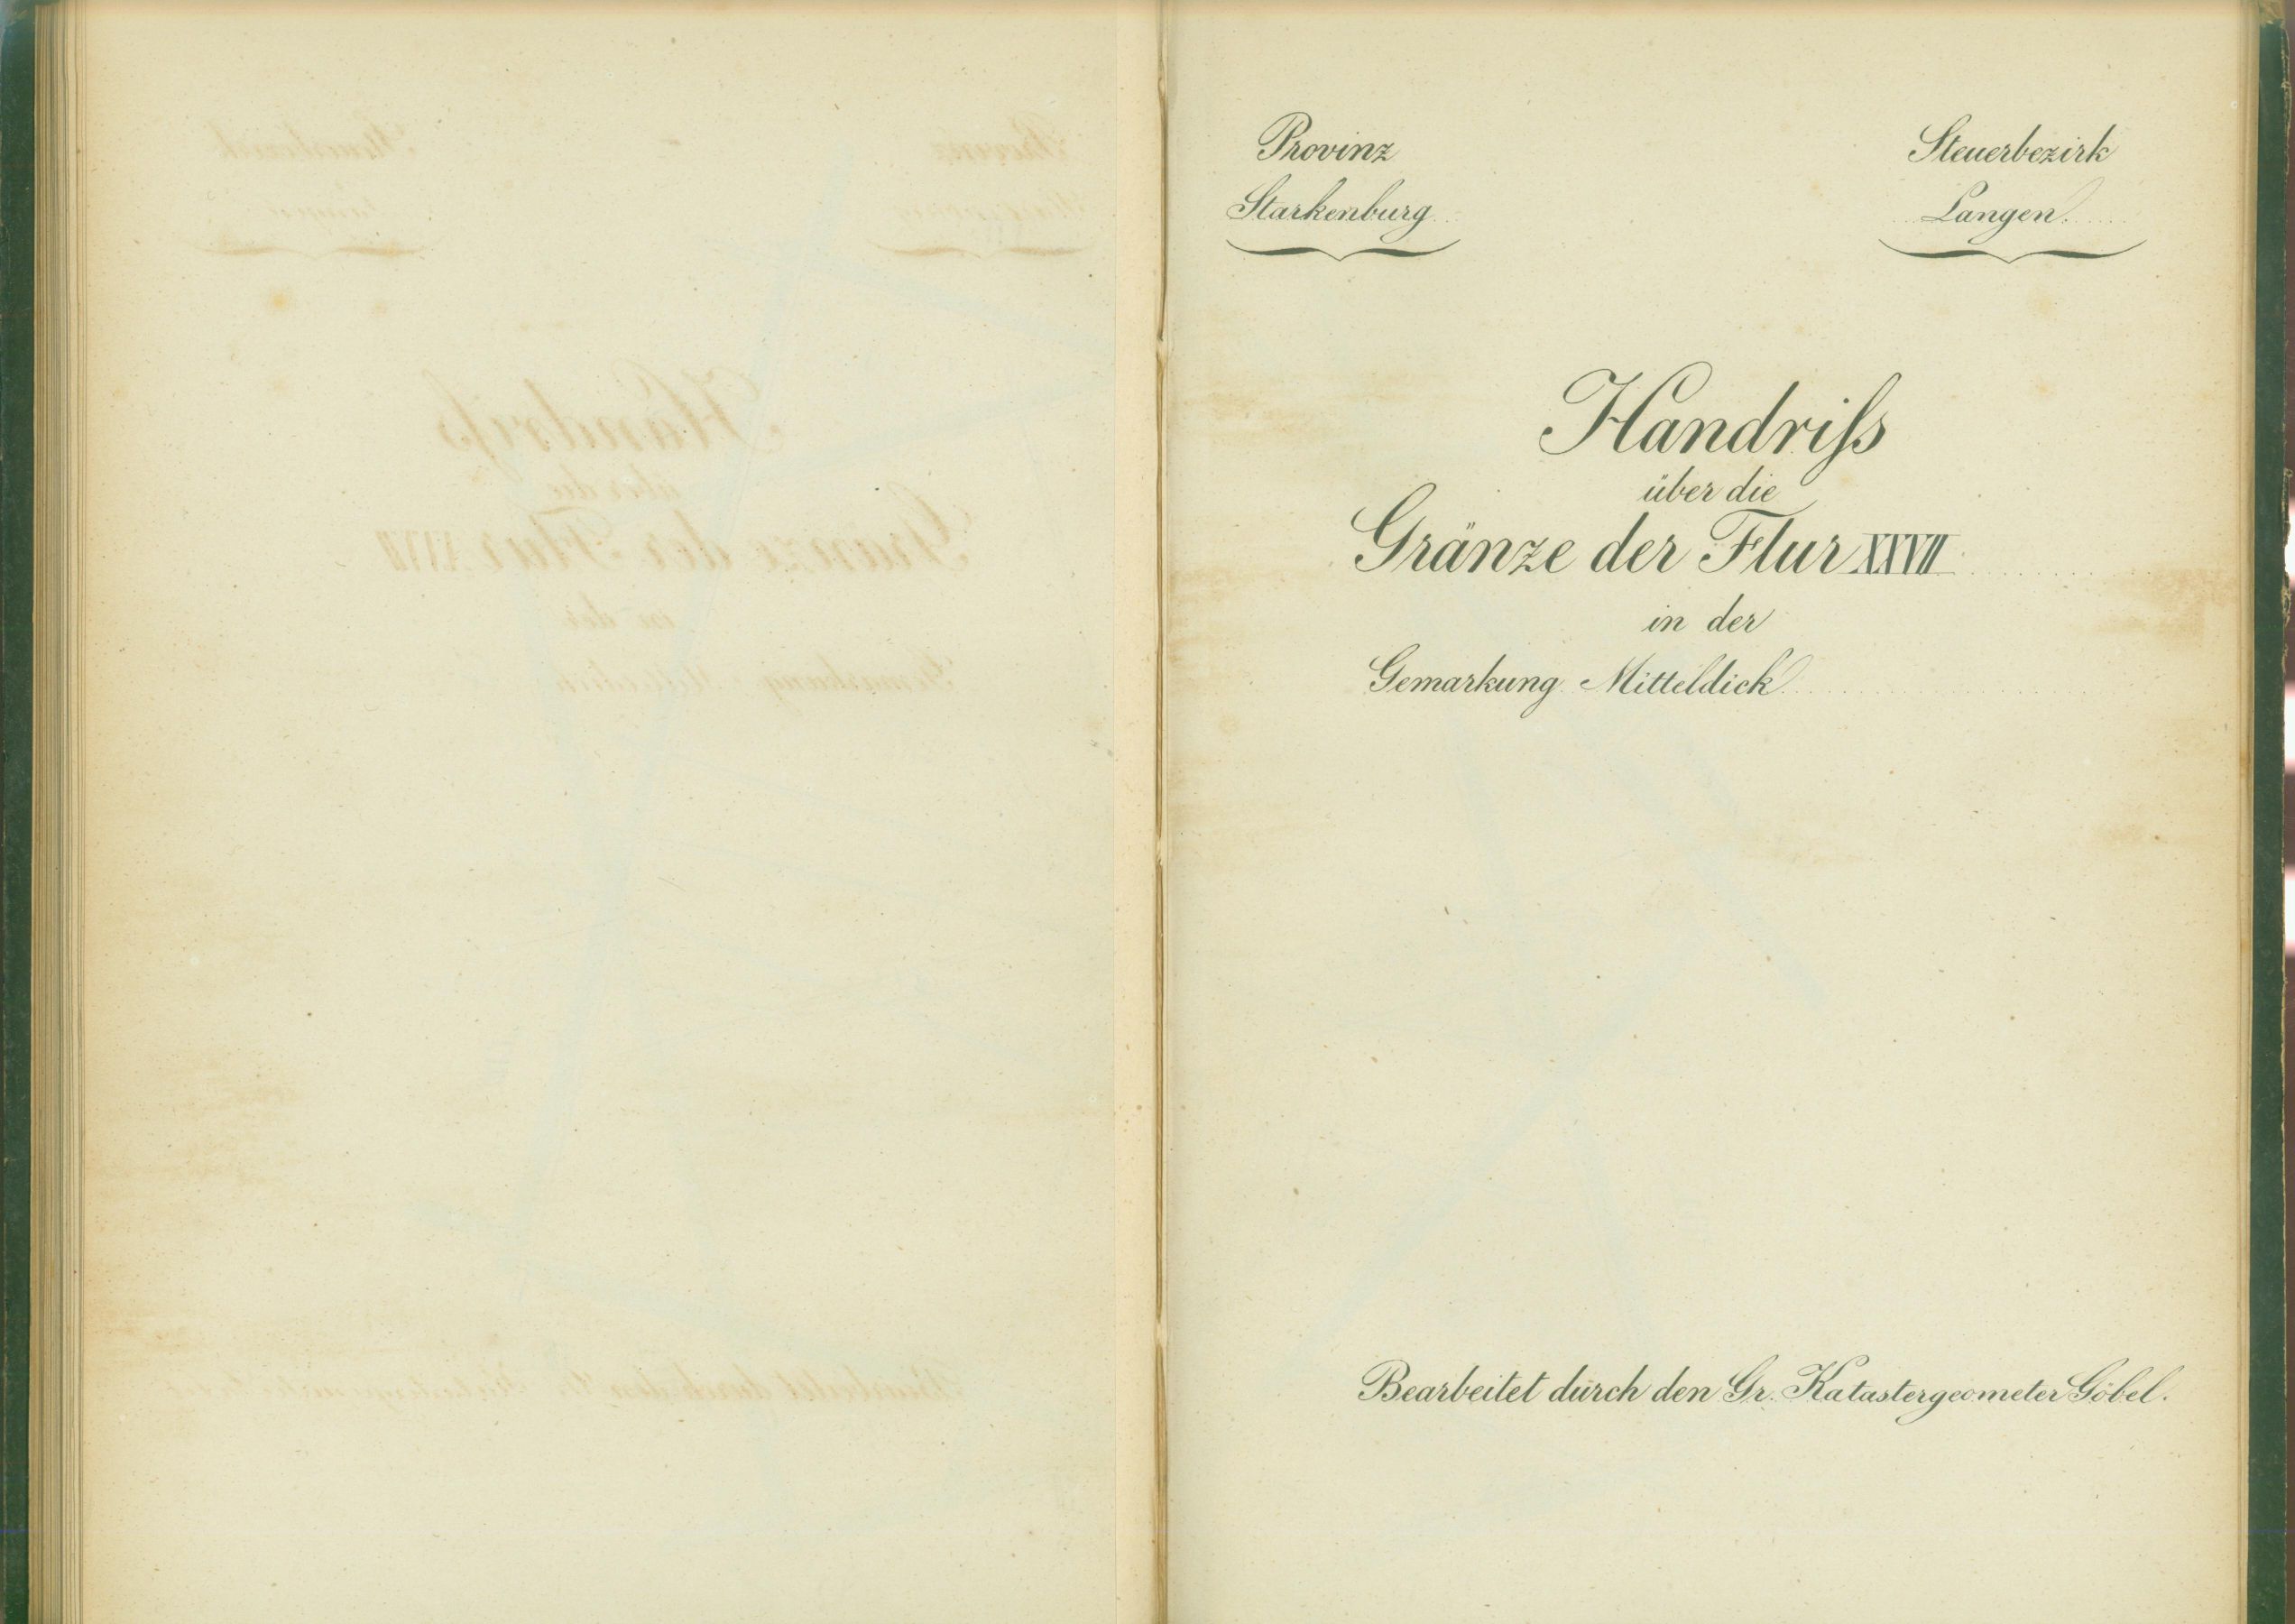 Provinz
Starkenburg
Steuerbezirk
Langen.
Handriſs
über die
Gränze der Flur XXVII
in der
Gemarkung Mitteldick
Bearbeitet durch den Gr. Katastergeometer Göbel.